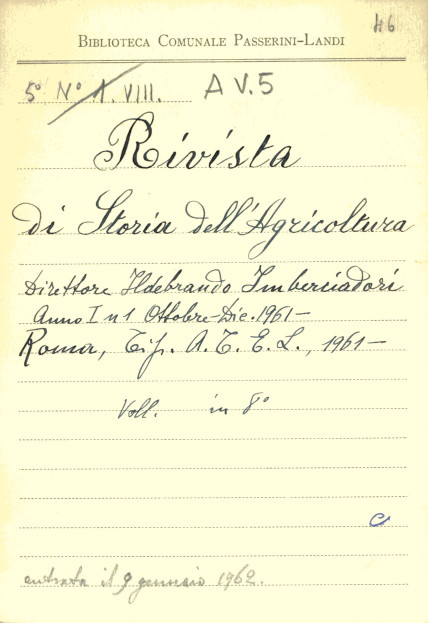 46
BIBLIOTECA COMUNALE PASSERINI-LANDI
5° N° 1. VIII. A V.5
Rivista
di Storia dell'Agricoltura
Direttore Ildebrando Imberciadori
Anno I n 1 Ottobre-Dic. 1961-
Roma, Tip. A. T. E. L., 1961-
Voll. in 8°
c
entrata il 9 gennaio 1962.